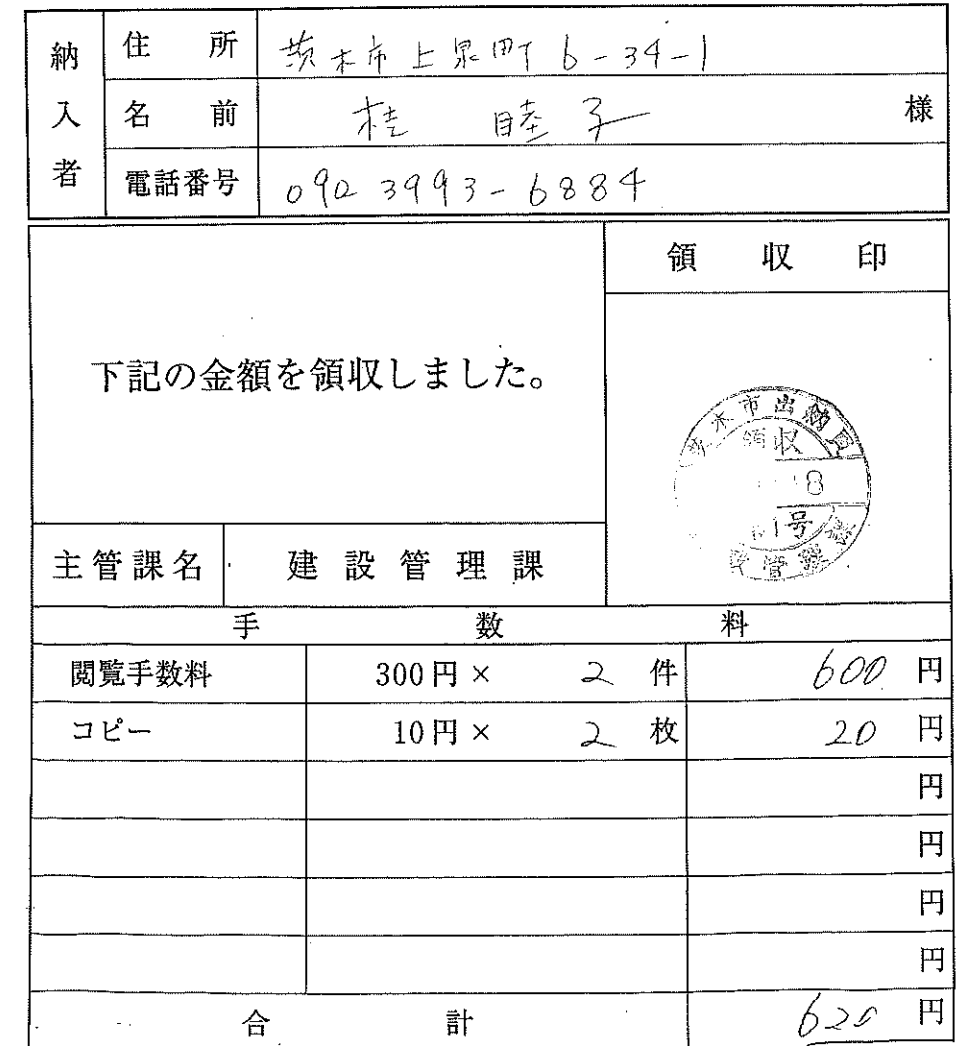 納入者
住所 茨木市上泉町6-34-1
名前 桂 睦子 様
電話番号 090 3993-6884
領収印
下記の金額を領収しました。
木市出納員
領収
8
1号
管理
主管課名 建設管理課
手数料
閲覧手数料 300円× 2 件 600 円
コピー 10円× 2 枚 20 円
円
円
円
円
合計 620 円